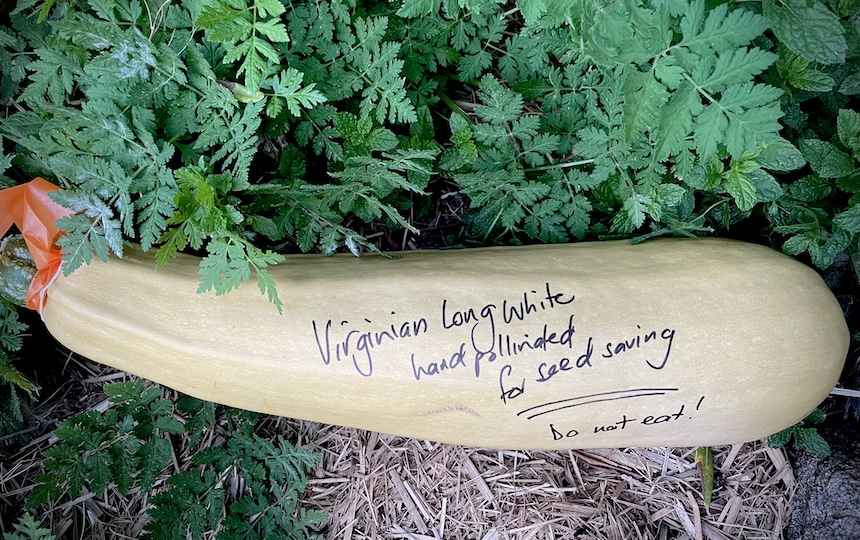 Virginian Long White
hand pollinated
for seed saving
Do not eat!